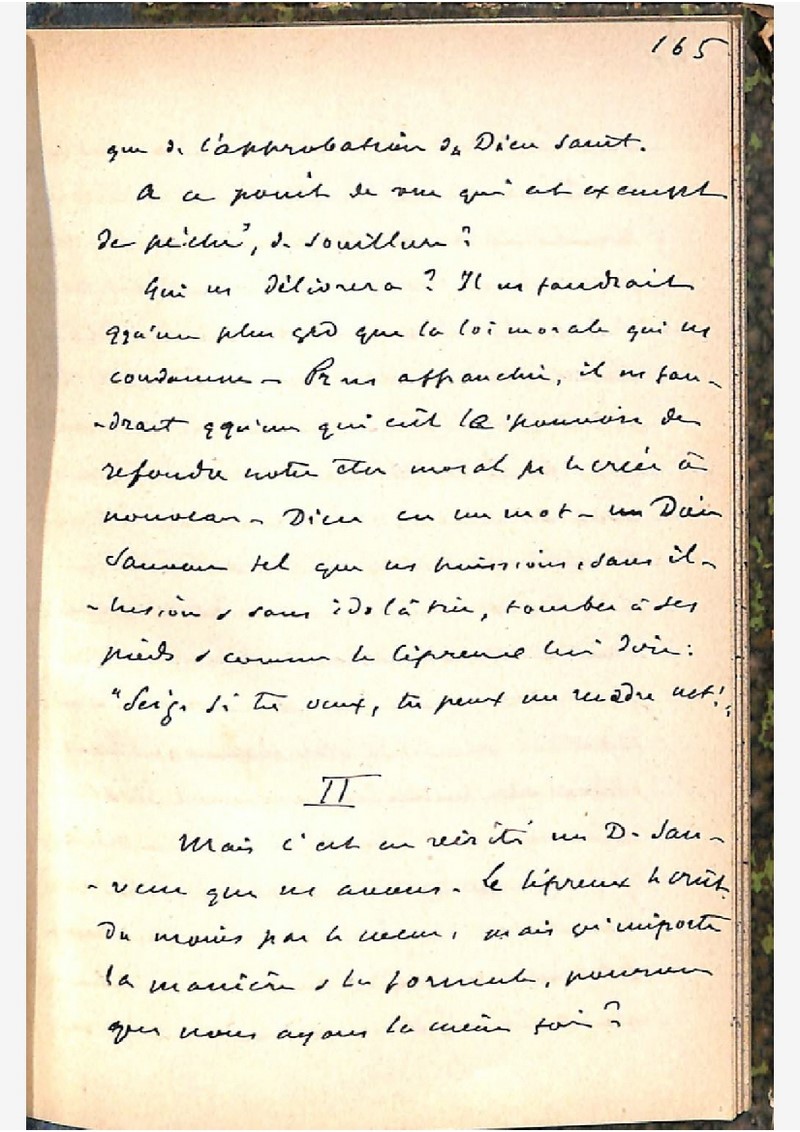 165
que de l'approbation du Dieu saint.
A ce point de vue qui est exempt
de péché, de souillure?
Qui ns délivrera? Il ns faudrait
qqu'un plus gd que la loi morale qui ns
condamne - Pr ns affranchir, il ns fau-
-drait qqu'un qui eût le pouvoir de
refondre notre être moral pr le créer à
nouveau - Dieu en un mot - un Dieu
Sauveur tel que ns puissions, sans il-
-lusion & sans idolâtrie, tomber à ses
pieds & comme le lépreux lui dire:
"Seigr si tu veux, tu peux me rendre net!"
II
Mais c'est en vérité un D. Sau-
-veur que ns avons. Le lépreux le crût
du moins par le cœur, mais qu'importe
la manière & la formule, pourvu
que nous ayons la même foi?